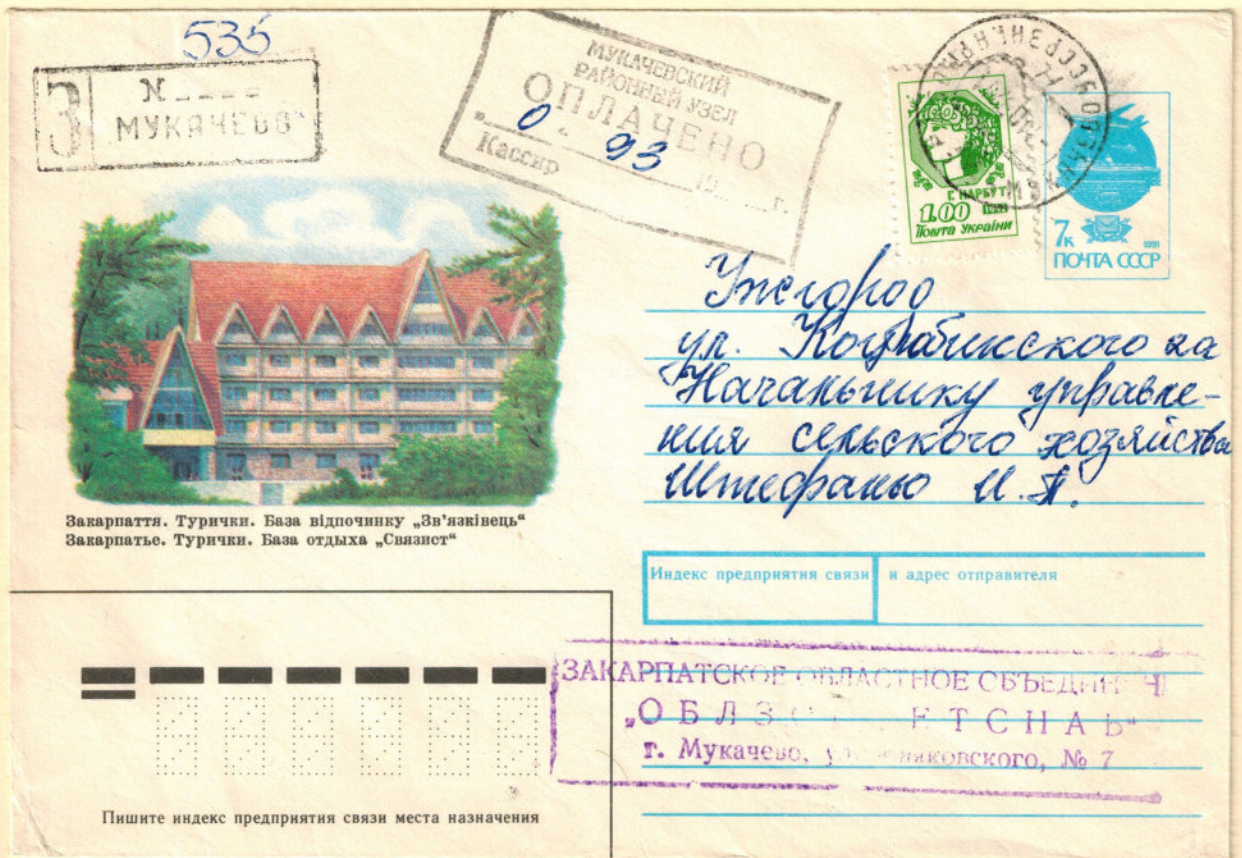 535
З N
МУКАЧЕВО
МУКАЧЕВСКИЙ
РАЙОННЫЙ УЗЕЛ
ОПЛАЧЕНО
" 0 " 93 19 г.
Кассир
Г. НАРБУТ
1.00
Пошта України
7к
1991
ПОЧТА СССР
Ужгород
ул. Коцюбинского 2а
Начальнику управле-
ния сельского хозяйства
Штефаньо И.П.
Закарпаття. Турички. База відпочинку „Зв'язківець“
Закарпатье. Турички. База отдыха „Связист“
Индекс предприятия связи и адрес отправителя
ЗАКАРПАТСКОЕ ОБЛАСТНОЕ
г. Мукачево, № 7
Пишите индекс предприятия связи места назначения